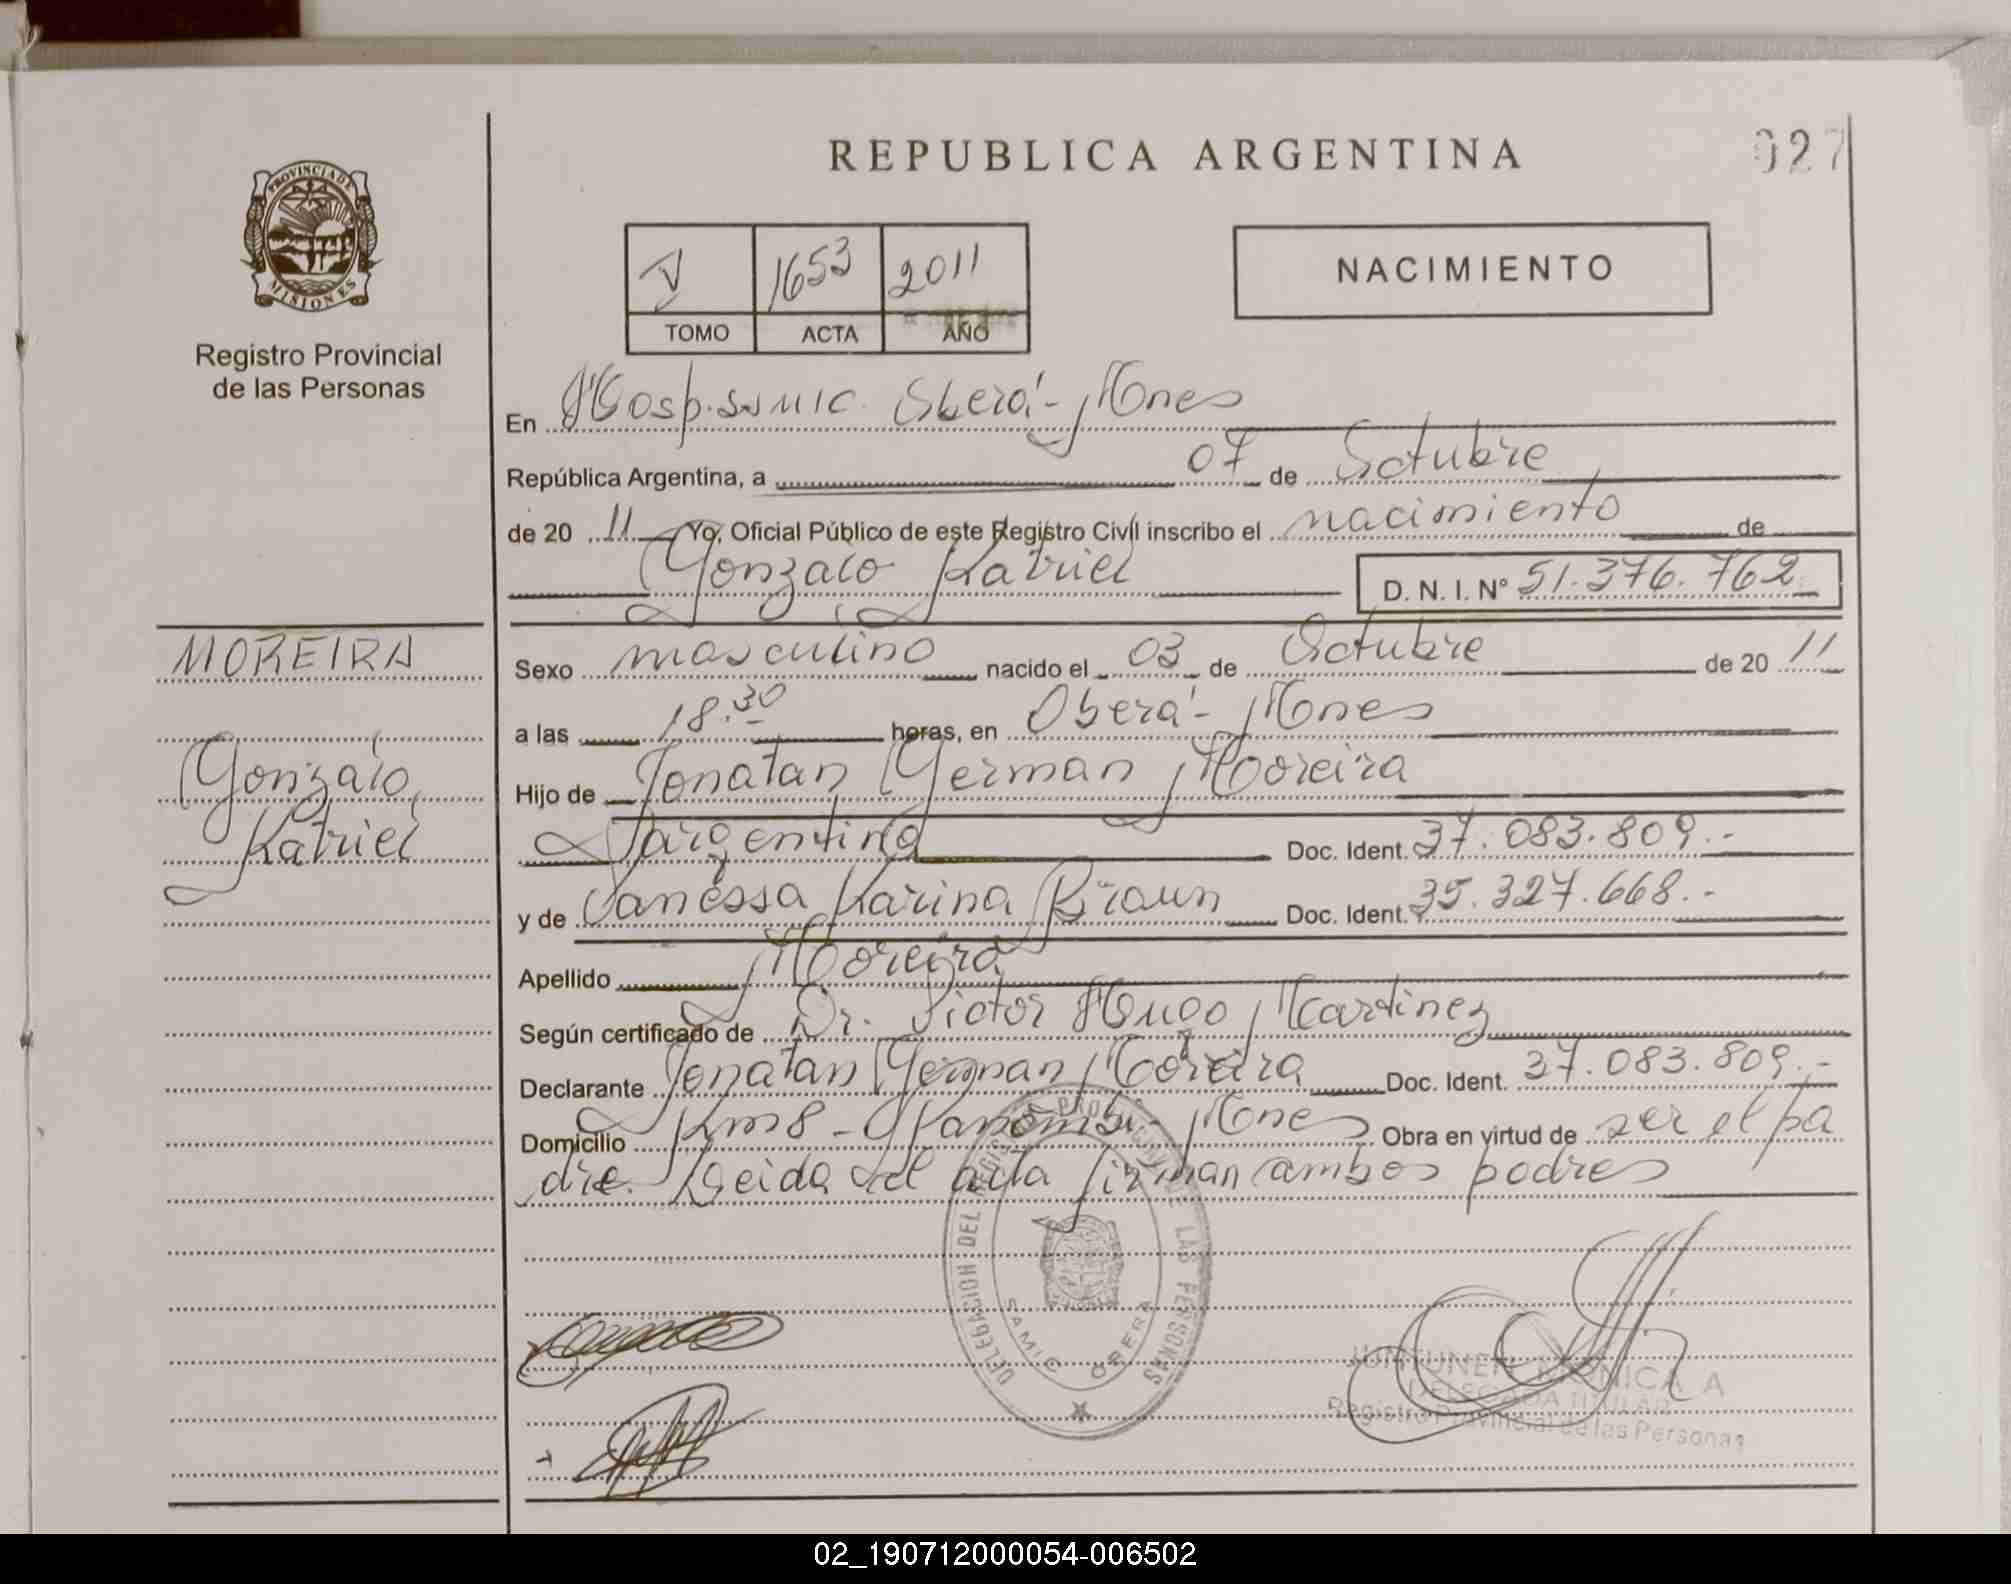 REPUBLICA ARGENTINA
027
PROVINCIA DE
MISIONES
Registro Provincial
de las Personas
V 1653 2011
TOMO ACTA AÑO
NACIMIENTO
En Hosp. SAMIC. Oberá - Mnes
República Argentina, a 07 de Octubre
de 20 11 Yo, Oficial Público de este Registro Civil inscribo el nacimiento de
Gonzalo Katriel D. N. I. Nº 51.376.762
MOREIRA
Gonzalo
Katriel
Sexo masculino nacido el 03 de Octubre de 20 11
a las 18.30 horas, en Oberá - Mnes
Hijo de Jonatan German Moreira
argentino Doc. Ident. 37.083.809.-
y de Vanessa Karina Braun Doc. Ident. 35.327.668.-
Apellido Moreira
Según certificado de Dr. Victor Hugo Martinez
Declarante Jonatan German Moreira Doc. Ident. 37.083.809.-
Domicilio Km 8 - Panambi - Mnes Obra en virtud de ser el pa
dre. Leida el acta firman ambos padres
DELEGACION DEL REGISTRO PROVINCIAL DE LAS PERSONAS
SAMIC OBERA
MONICA A
DELEGADA TITULAR
Registro Provincial de las Personas
02_190712000054-006502